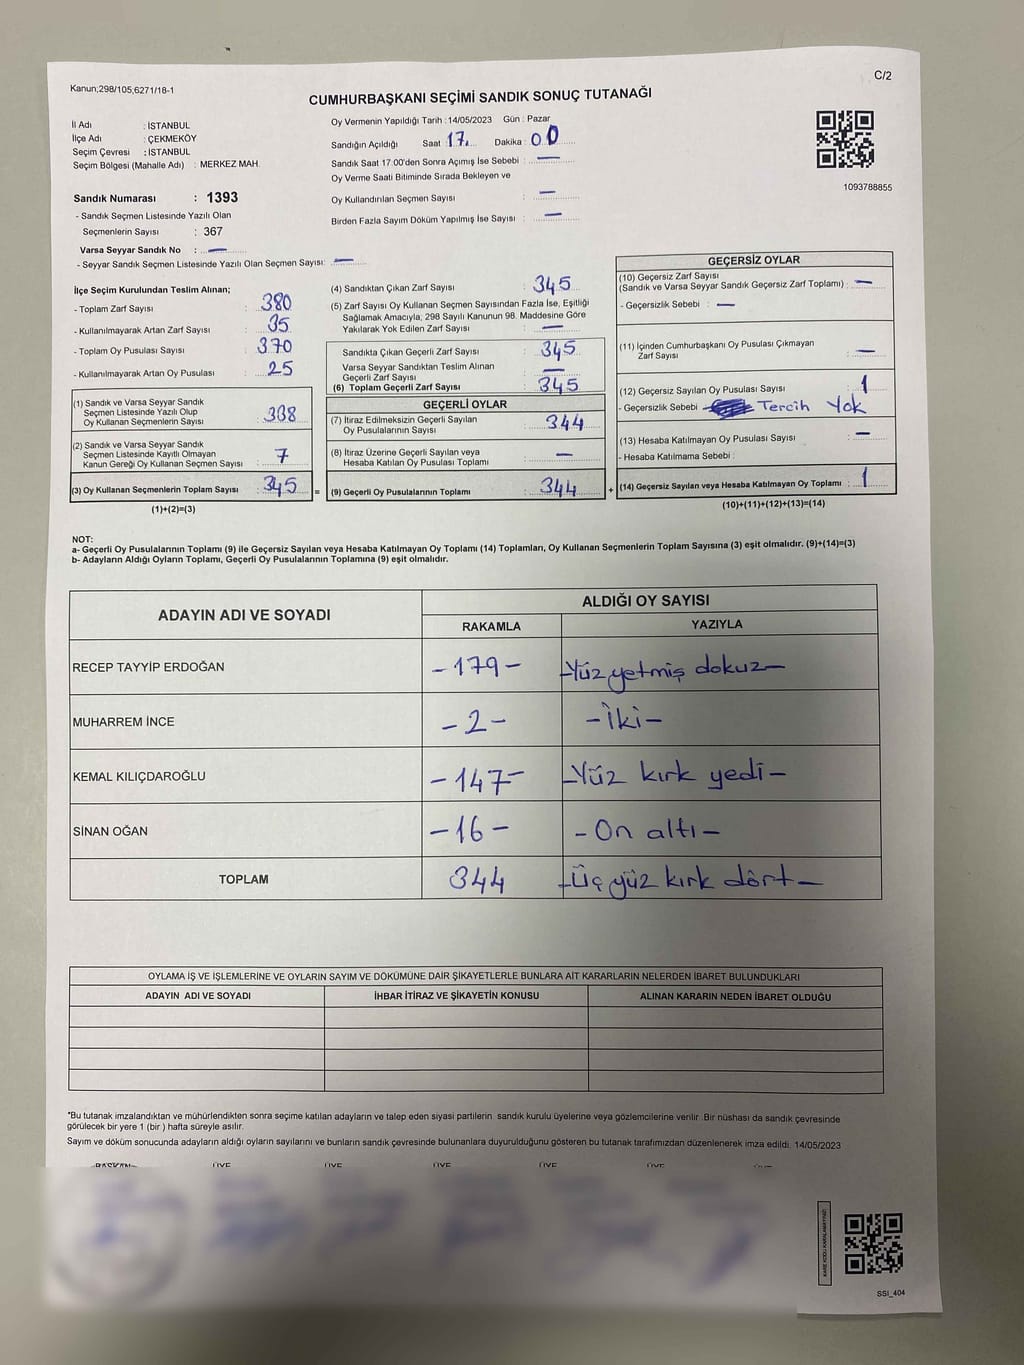 Kanun;298/105,6271/18-1
C/2
CUMHURBAŞKANI SEÇİMİ SANDIK SONUÇ TUTANAĞI
İl Adı : İSTANBUL
İlçe Adı : ÇEKMEKÖY
Seçim Çevresi : İSTANBUL
Seçim Bölgesi (Mahalle Adı) : MERKEZ MAH.
Oy Vermenin Yapıldığı Tarih : 14/05/2023 Gün : Pazar
Sandığın Açıldığı Saat 17 Dakika : 00
Sandık Saat 17:00'den Sonra Açımış İse Sebebi : —
Oy Verme Saati Bitiminde Sırada Bekleyen ve
Oy Kullandırılan Seçmen Sayısı : —
Birden Fazla Sayım Döküm Yapılmış İse Sayısı : —
1093788855
Sandık Numarası : 1393
- Sandık Seçmen Listesinde Yazılı Olan
Seçmenlerin Sayısı : 367
Varsa Seyyar Sandık No : —
- Seyyar Sandık Seçmen Listesinde Yazılı Olan Seçmen Sayısı: —
İlçe Seçim Kurulundan Teslim Alınan;
- Toplam Zarf Sayısı : 380
- Kullanılmayarak Artan Zarf Sayısı : 35
- Toplam Oy Pusulası Sayısı : 370
- Kullanılmayarak Artan Oy Pusulası : 25
(1) Sandık ve Varsa Seyyar Sandık
Seçmen Listesinde Yazılı Olup
Oy Kullanan Seçmenlerin Sayısı : 338
(2) Sandık ve Varsa Seyyar Sandık
Seçmen Listesinde Kayıtlı Olmayan
Kanun Gereği Oy Kullanan Seçmen Sayısı : 7
(3) Oy Kullanan Seçmenlerin Toplam Sayısı : 345 =
(1)+(2)=(3)
(4) Sandıktan Çıkan Zarf Sayısı : 345
(5) Zarf Sayısı Oy Kullanan Seçmen Sayısından Fazla İse, Eşitliği
Sağlamak Amacıyla, 298 Sayılı Kanunun 98. Maddesine Göre
Yakılarak Yok Edilen Zarf Sayısı : —
Sandıkta Çıkan Geçerli Zarf Sayısı : 345
Varsa Seyyar Sandıktan Teslim Alınan
Geçerli Zarf Sayısı : —
(6) Toplam Geçerli Zarf Sayısı : 345
GEÇERLİ OYLAR
(7) İtiraz Edilmeksizin Geçerli Sayılan
Oy Pusulalarının Sayısı : 344
(8) İtiraz Üzerine Geçerli Sayılan veya
Hesaba Katılan Oy Pusulası Toplamı : —
(9) Geçerli Oy Pusulalarının Toplamı : 344 +
GEÇERSİZ OYLAR
(10) Geçersiz Zarf Sayısı
(Sandık ve Varsa Seyyar Sandık Geçersiz Zarf Toplamı) : —
- Geçersizlik Sebebi : —
(11) İçinden Cumhurbaşkanı Oy Pusulası Çıkmayan
Zarf Sayısı : —
(12) Geçersiz Sayılan Oy Pusulası Sayısı : 1
- Geçersizlik Sebebi Tercih Yok
(13) Hesaba Katılmayan Oy Pusulası Sayısı : —
- Hesaba Katılmama Sebebi :
(14) Geçersiz Sayılan veya Hesaba Katılmayan Oy Toplamı : 1
(10)+(11)+(12)+(13)=(14)
NOT:
a- Geçerli Oy Pusulalarının Toplamı (9) ile Geçersiz Sayılan veya Hesaba Katılmayan Oy Toplamı (14) Toplamları, Oy Kullanan Seçmenlerin Toplam Sayısına (3) eşit olmalıdır. (9)+(14)=(3)
b- Adayların Aldığı Oyların Toplamı, Geçerli Oy Pusulalarının Toplamına (9) eşit olmalıdır.
ADAYIN ADI VE SOYADI
ALDIĞI OY SAYISI
RAKAMLA YAZIYLA
RECEP TAYYİP ERDOĞAN -179- -Yüz yetmiş dokuz-
MUHARREM İNCE -2- -İki-
KEMAL KILIÇDAROĞLU -147- -Yüz kırk yedi-
SİNAN OĞAN -16- -On altı-
TOPLAM 344 -Üç yüz kırk dört-
OYLAMA İŞ VE İŞLEMLERİNE VE OYLARIN SAYIM VE DÖKÜMÜNE DAİR ŞİKAYETLERLE BUNLARA AİT KARARLARIN NELERDEN İBARET BULUNDUKLARI
ADAYIN ADI VE SOYADI İHBAR İTİRAZ VE ŞİKAYETİN KONUSU ALINAN KARARIN NEDEN İBARET OLDUĞU
*Bu tutanak imzalandıktan ve mühürlendikten sonra seçime katılan adayların ve talep eden siyasi partilerin sandık kurulu üyelerine veya gözlemcilerine verilir. Bir nüshası da sandık çevresinde
görülecek bir yere 1 (bir ) hafta süreyle asılır.
Sayım ve döküm sonucunda adayların aldığı oyların sayılarını ve bunların sandık çevresinde bulunanlara duyurulduğunu gösteren bu tutanak tarafımızdan düzenlenerek imza edildi. 14/05/2023
BAŞKAN ÜYE ÜYE ÜYE ÜYE ÜYE
KARE KODU KARALAMAYINIZ!
SSI_404